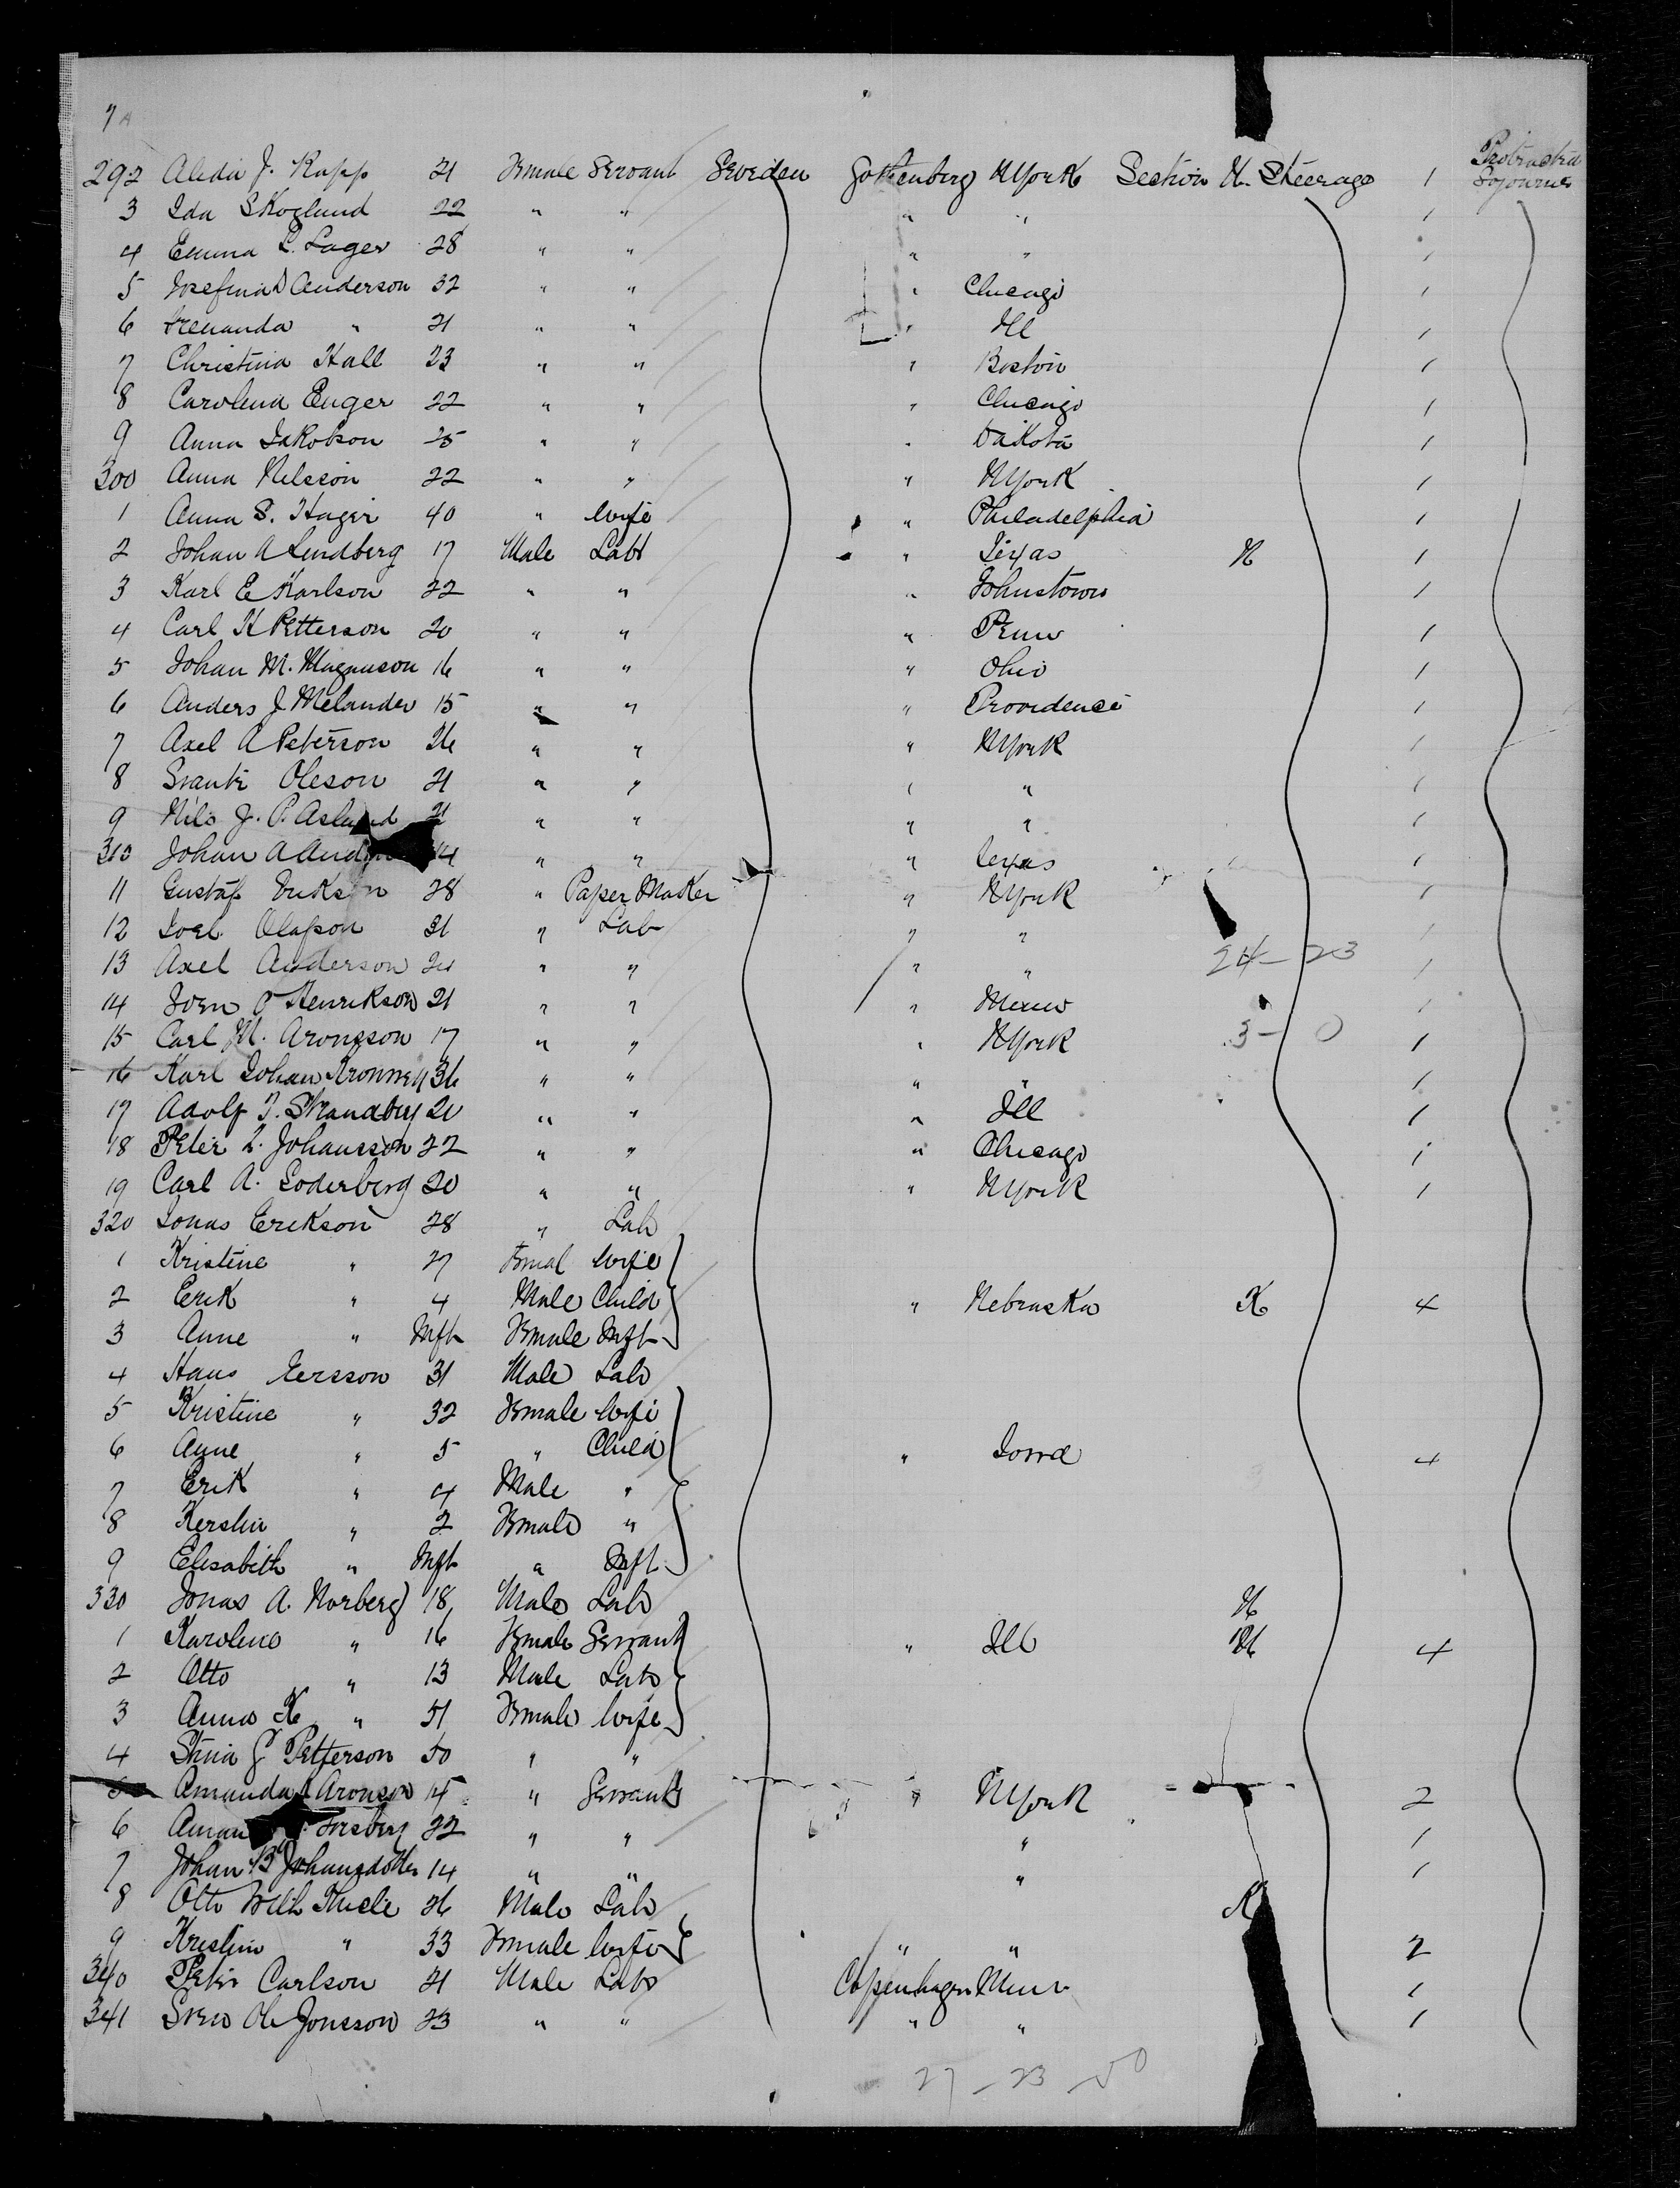 7A
292 Aleda J. Rapp 21 Female Servant Sweden Gottenberg NYork Section H. Steerage 1 Protracted Sojourner
3 Ida Skoglund 22 " " " " 1
4 Emma L. Lager 28 " " " " 1
5 Josefina D Anderson 32 " " " Chicago 1
6 " 21 " " " Ill 1
7 Christina Hall 23 " " " Boston 1
8 Carolina Enger 22 " " " Chicago 1
9 Anna Jakobson 25 " " " Dakota 1
300 Anna Nilsson 22 " " " NYork 1
1 Anna S. Hager 40 " Wife " Philadelphia 1
2 Johan A Lindberg 17 Male Labr " Texas H 1
3 Karl E Karlson 22 " " " Johnstown 1
4 Carl H Petterson 20 " " " Penn 1
5 Johan M. Magnuson 16 " " " Ohio 1
6 Anders J Melander 15 " " " Providence 1
7 Axel A Peterson 26 " " " NYork 1
8 Svante Oleson 21 " " " " 1
9 Nils J. P. Aslund 21 " " " " 1
310 Johan A " " " Texas 1
11 Gustaf Erikson 28 " Paper Maker " NYork 1
12 Joel Olafson 31 " Lab " " 1
13 Axel Anderson 24 " " " " 24-23 1
14 Sven O Henrikson 21 " " " Minn 1
15 Carl M. Aronsson 17 " " " NYork 3-0 1
16 Karl Johan 36 " " " " 1
17 Adolf T. Strandberg 20 " " " Ill 1
18 Peter L. Johansson 22 " " " Chicago 1
19 Carl A. Soderberg 20 " " " NYork 1
320 Jonas Erikson 28 " Lab
1 Kristine " 27 Femal Wife
2 Erik " 4 Male Child " Nebraska H 4
3 Anne " Inft Female Inft
4 Hans Persson 31 Male Lab
5 Kristine " 32 Female Wife
6 Anne " 5 " Child " Iowa 4
7 Erik " 4 Male "
8 Kerstin " 2 Female "
9 Elisabeth " Inft " Inft
330 Jonas A. Norberg 18 Male Lab H
1 Karoline " 16 Female Servant " Ill H 4
2 Otto " 13 Male Lab
3 Anna K " 51 Female Wife
4 Stina G Petterson 50 " "
5 Amanda Aronson 15 " Servant " NYork 2
6 Forsberg 22 " " " 1
7 Johan B Johansdotter 14 " " " 1
8 Otto Wilh Thiele 26 Male Lab
9 Kristin " 33 Female Wife " " 2
340 Peter Carlson 21 Male Lab Copenhagen Minn 1
341 Sven Ol Jonsson 23 " " " " 1
27-23-50